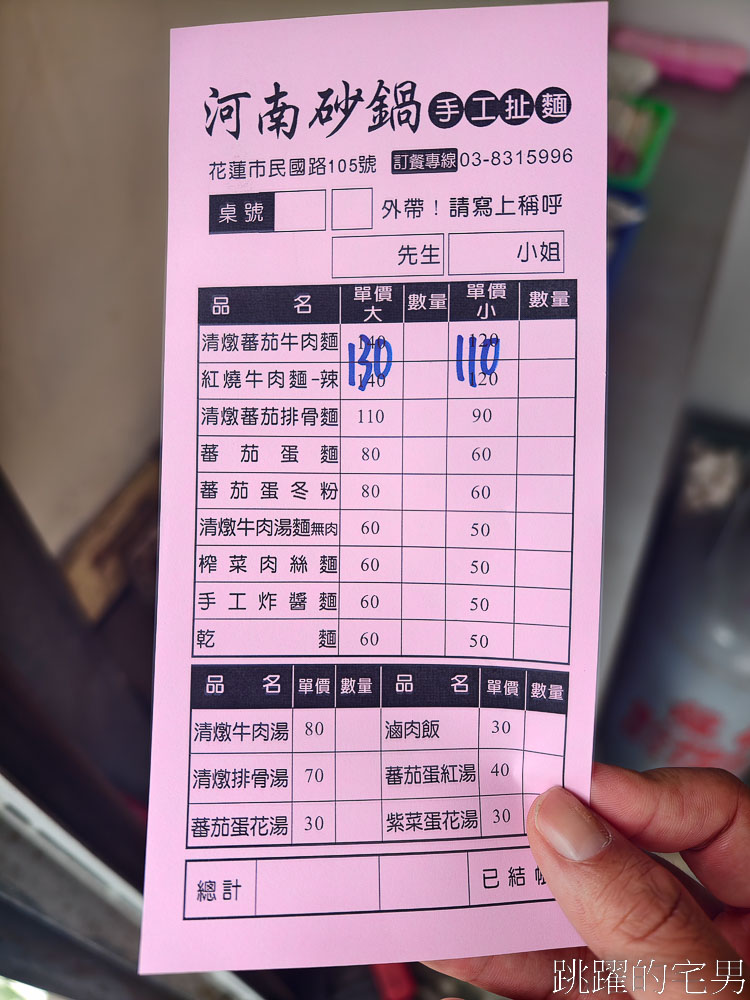 河南砂鍋 手工扯麵
花蓮市民國路105號 訂餐專線 03-8315996
桌號 外帶！請寫上稱呼
先生 小姐
品名 單價大 數量 單價小 數量
清燉蕃茄牛肉麵 140 120
130 110
紅燒牛肉麵-辣 140 120
清燉蕃茄排骨麵 110 90
蕃茄蛋麵 80 60
蕃茄蛋冬粉 80 60
清燉牛肉湯麵無肉 60 50
榨菜肉絲麵 60 50
手工炸醬麵 60 50
乾麵 60 50
品名 單價 數量 品名 單價 數量
清燉牛肉湯 80 滷肉飯 30
清燉排骨湯 70 蕃茄蛋紅湯 40
蕃茄蛋花湯 30 紫菜蛋花湯 30
總計 已結
跳躍的宅男